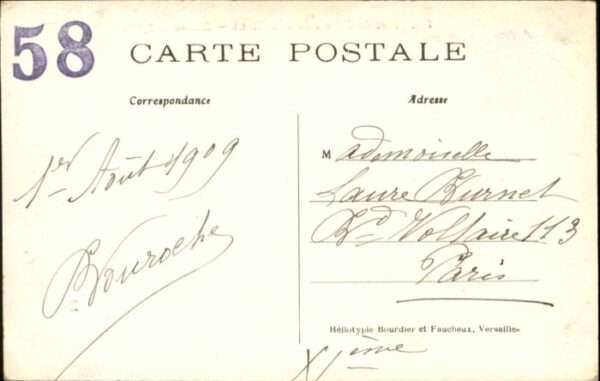 58
CARTE POSTALE
Correspondance
Adresse
1er Août 1909
Mademoiselle
Laure Burnet
Bd Voltaire 113
Paris
Héliotypie Bourdier et Faucheux, Versailles
XIème